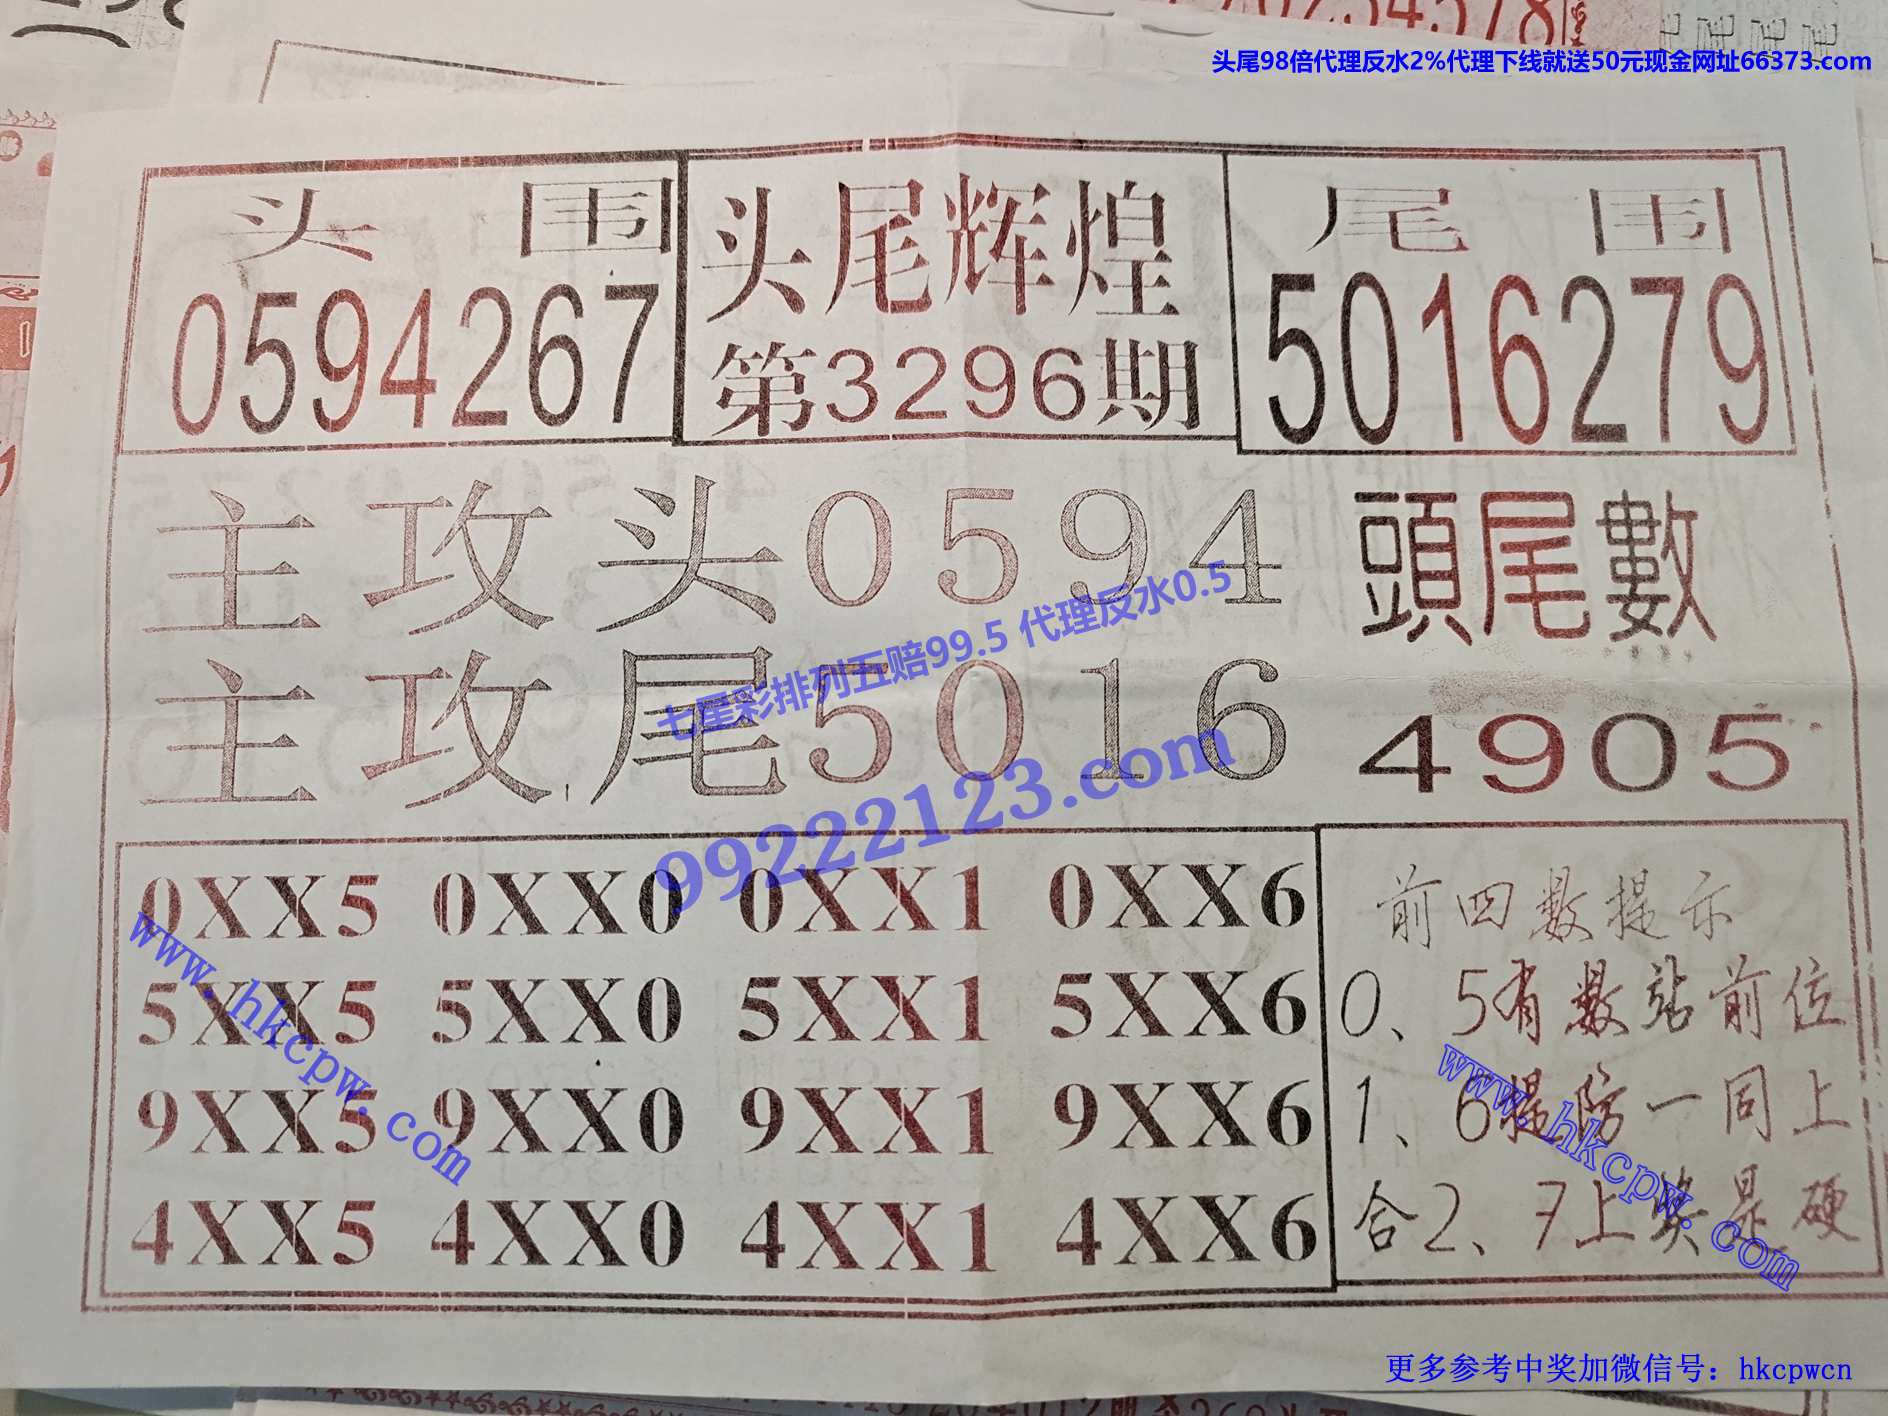 头尾98倍代理反水2%代理下线就送50元现金网址66373.com
头 围
0594267
头尾辉煌
第3296期
尾 围
5016279
主攻头0594
主攻尾5016
頭尾數
4905
七星彩排列五赔99.5 代理反水0.5
99222123.com
0XX5 0XX0 0XX1 0XX6
5XX5 5XX0 5XX1 5XX6
9XX5 9XX0 9XX1 9XX6
4XX5 4XX0 4XX1 4XX6
前四数提示
0、5有数站前位
1、6提防一同上
合2、7上奖是硬
www.hkcpw.com
www.hkcpw.com
更多参考中奖加微信号：hkcpwcn